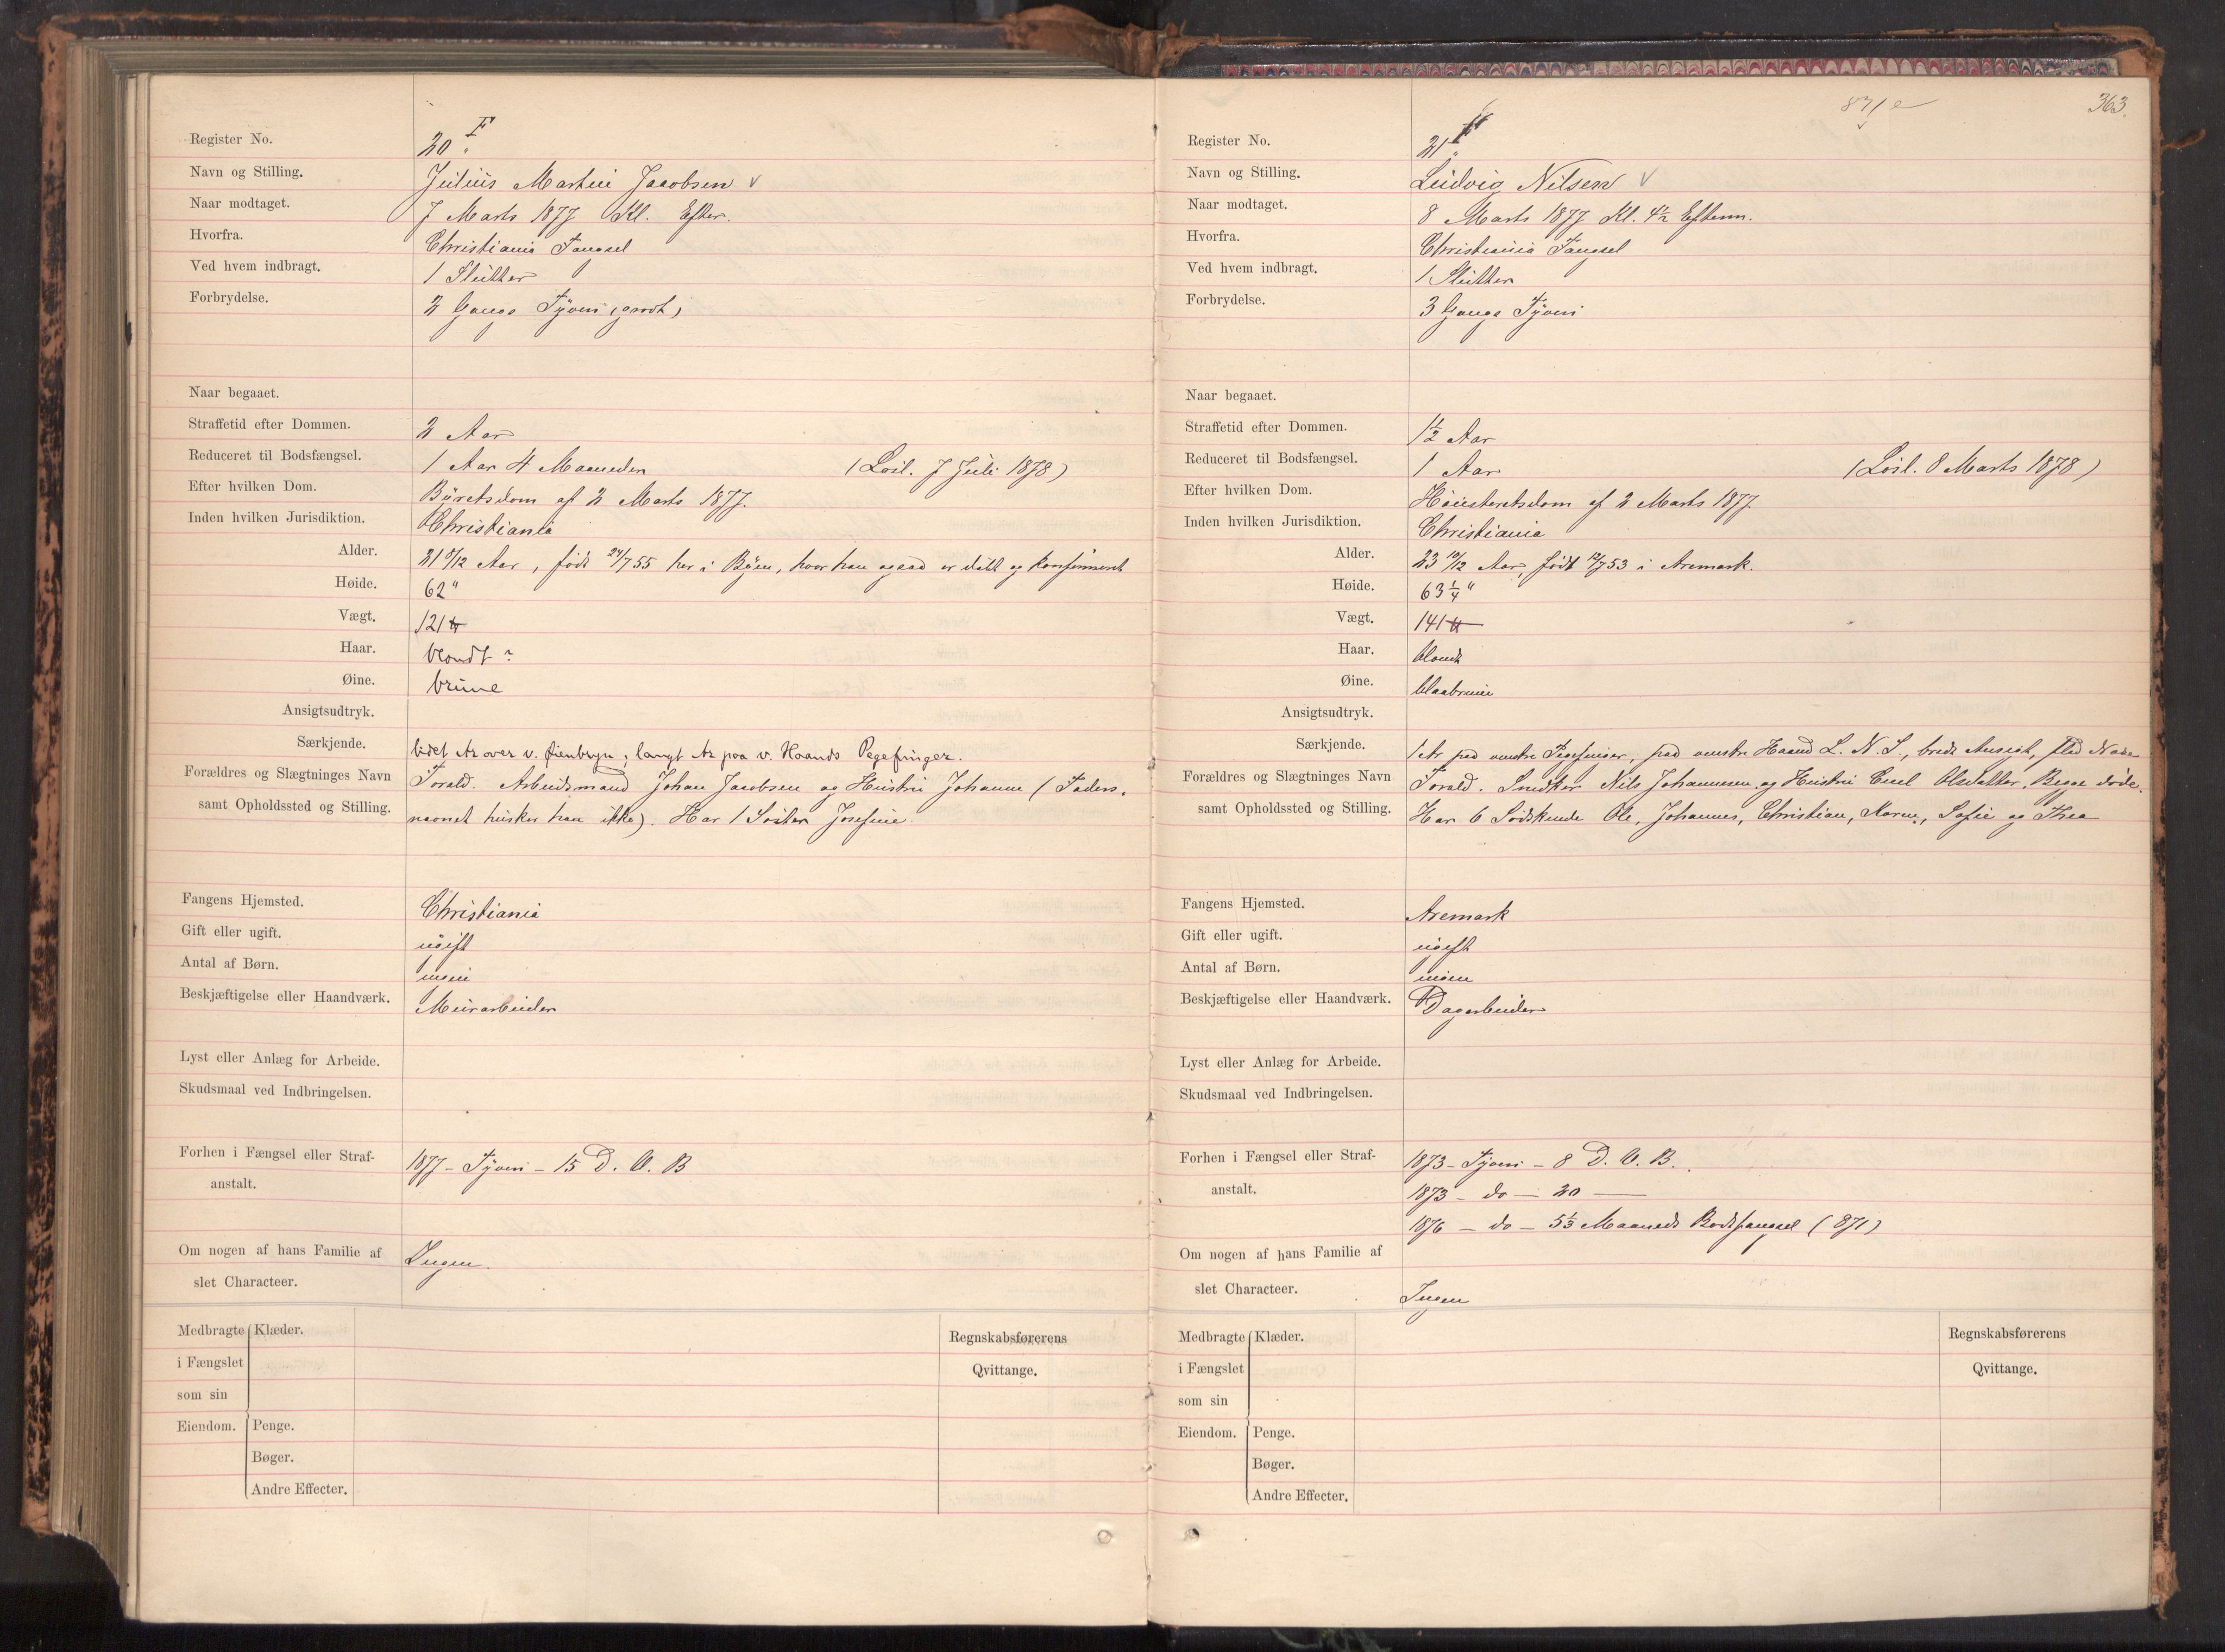 Register No. 20 F
Navn og Stilling. Julius Martin Jacobsen v
Naar modtaget. 7 Marts 1877 Kl. Efter.
Hvorfra. Christiania Fængsel
Ved hvem indbragt. 1 Slutter
Forbrydelse. 2 Gange Tyveri (grovt)
Naar begaaet.
Straffetid efter Dommen. 2 Aar
Reduceret til Bodsfængsel. 1 Aar 4 Maaneder (Løsl. 7 Juli 1878)
Efter hvilken Dom. Byretsdom af 2 Marts 1877.
Inden hvilken Jurisdiktion. Christiania
Alder. 21 8/12 Aar, født 24/7 55 her i Byen, hvor han ogsaa er døbt og konfirmeret
Høide. 62"
Vægt. 121 ℔
Haar. blondt?
Øine. brune
Ansigtsudtryk.
Særkjende. lidet Ar over v. Øienbryn; langt Ar paa v. Haands Pegefinger.
Forældres og Slægtninges Navn Forald. Arbeidsmand Johan Jacobsen og Hustru Johanne (Faders-
samt Opholdssted og Stilling. navnet husker han ikke). Har 1 Søster Josefine.
Fangens Hjemsted. Christiania
Gift eller ugift. ugift
Antal af Børn. ingen
Beskjæftigelse eller Haandværk. Murarbeider
Lyst eller Anlæg for Arbeide.
Skudsmaal ved Indbringelsen.
Forhen i Fængsel eller Straf- 1877 - Tyveri - 15 D. V. B
anstalt.
Om nogen af hans Familie af Ingen.
slet Characteer.
Medbragte Klæder.
i Fængslet
som sin
Eiendom. Penge.
Bøger.
Andre Effecter.
Regnskabsførerens
Qvittange.
871 363.
Register No. 21 F
Navn og Stilling. Ludvig Nilsen v
Naar modtaget. 8 Marts 1877 Kl. 4½ Efterm.
Hvorfra. Christiania Fængsel
Ved hvem indbragt. 1 Slutter
Forbrydelse. 3 Gange Tyveri
Naar begaaet.
Straffetid efter Dommen. 1½ Aar
Reduceret til Bodsfængsel. 1 Aar (Løsl. 8 Marts 1878)
Efter hvilken Dom. Høiesteretsdom af 2 Marts 1877
Inden hvilken Jurisdiktion. Christiania
Alder. 23 10/12 Aar, født 12/7 53 i Aremark.
Høide. 63¼"
Vægt. 141 ℔
Haar. blondt
Øine. blaabrune
Ansigtsudtryk.
Særkjende. 1 Ar paa venstre Pegefinger, paa venstre Haand L. N. S., bredt Ansigt, flad Næse
Forældres og Slægtninges Navn Forald. Snedker Nils Johannesen og Hustru Olsdatter. Begge døde.
samt Opholdssted og Stilling. Har 6 Sødskende Ole, Johannes, Christian, Karen, Sofie og Thea
Fangens Hjemsted. Aremark
Gift eller ugift. ugift
Antal af Børn. ingen
Beskjæftigelse eller Haandværk. Dagarbeider
Lyst eller Anlæg for Arbeide.
Skudsmaal ved Indbringelsen.
Forhen i Fængsel eller Straf- 1873 - Tyveri - 8 D. V. B.
anstalt. 1873 - do - 20 —
1876 - do - 5⅓ Maaneds Bodsfængsel (871)
Om nogen af hans Familie af
slet Characteer. Ingen
Medbragte Klæder.
i Fængslet
som sin
Eiendom. Penge.
Bøger.
Andre Effecter.
Regnskabsførerens
Qvittange.